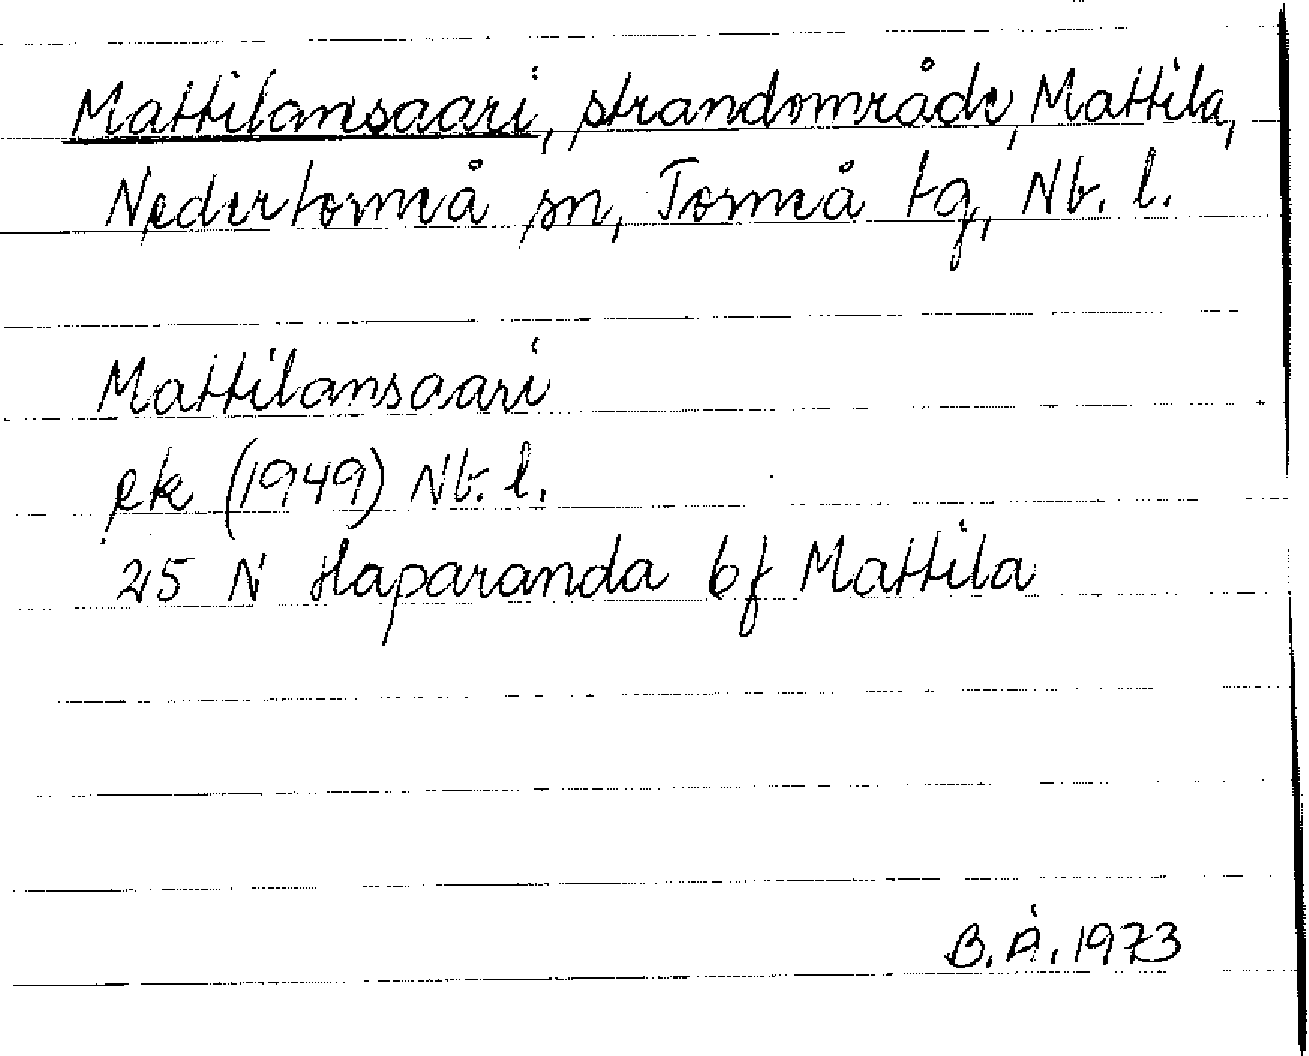 Mattilansaari, strandområde, Mattila,
Nedertorneå sn, Torneå tg, Nb. l.
Mattilansaari
ek (1949) Nb. l.
25 N Haparanda 6f Mattila
B. Å. 1973